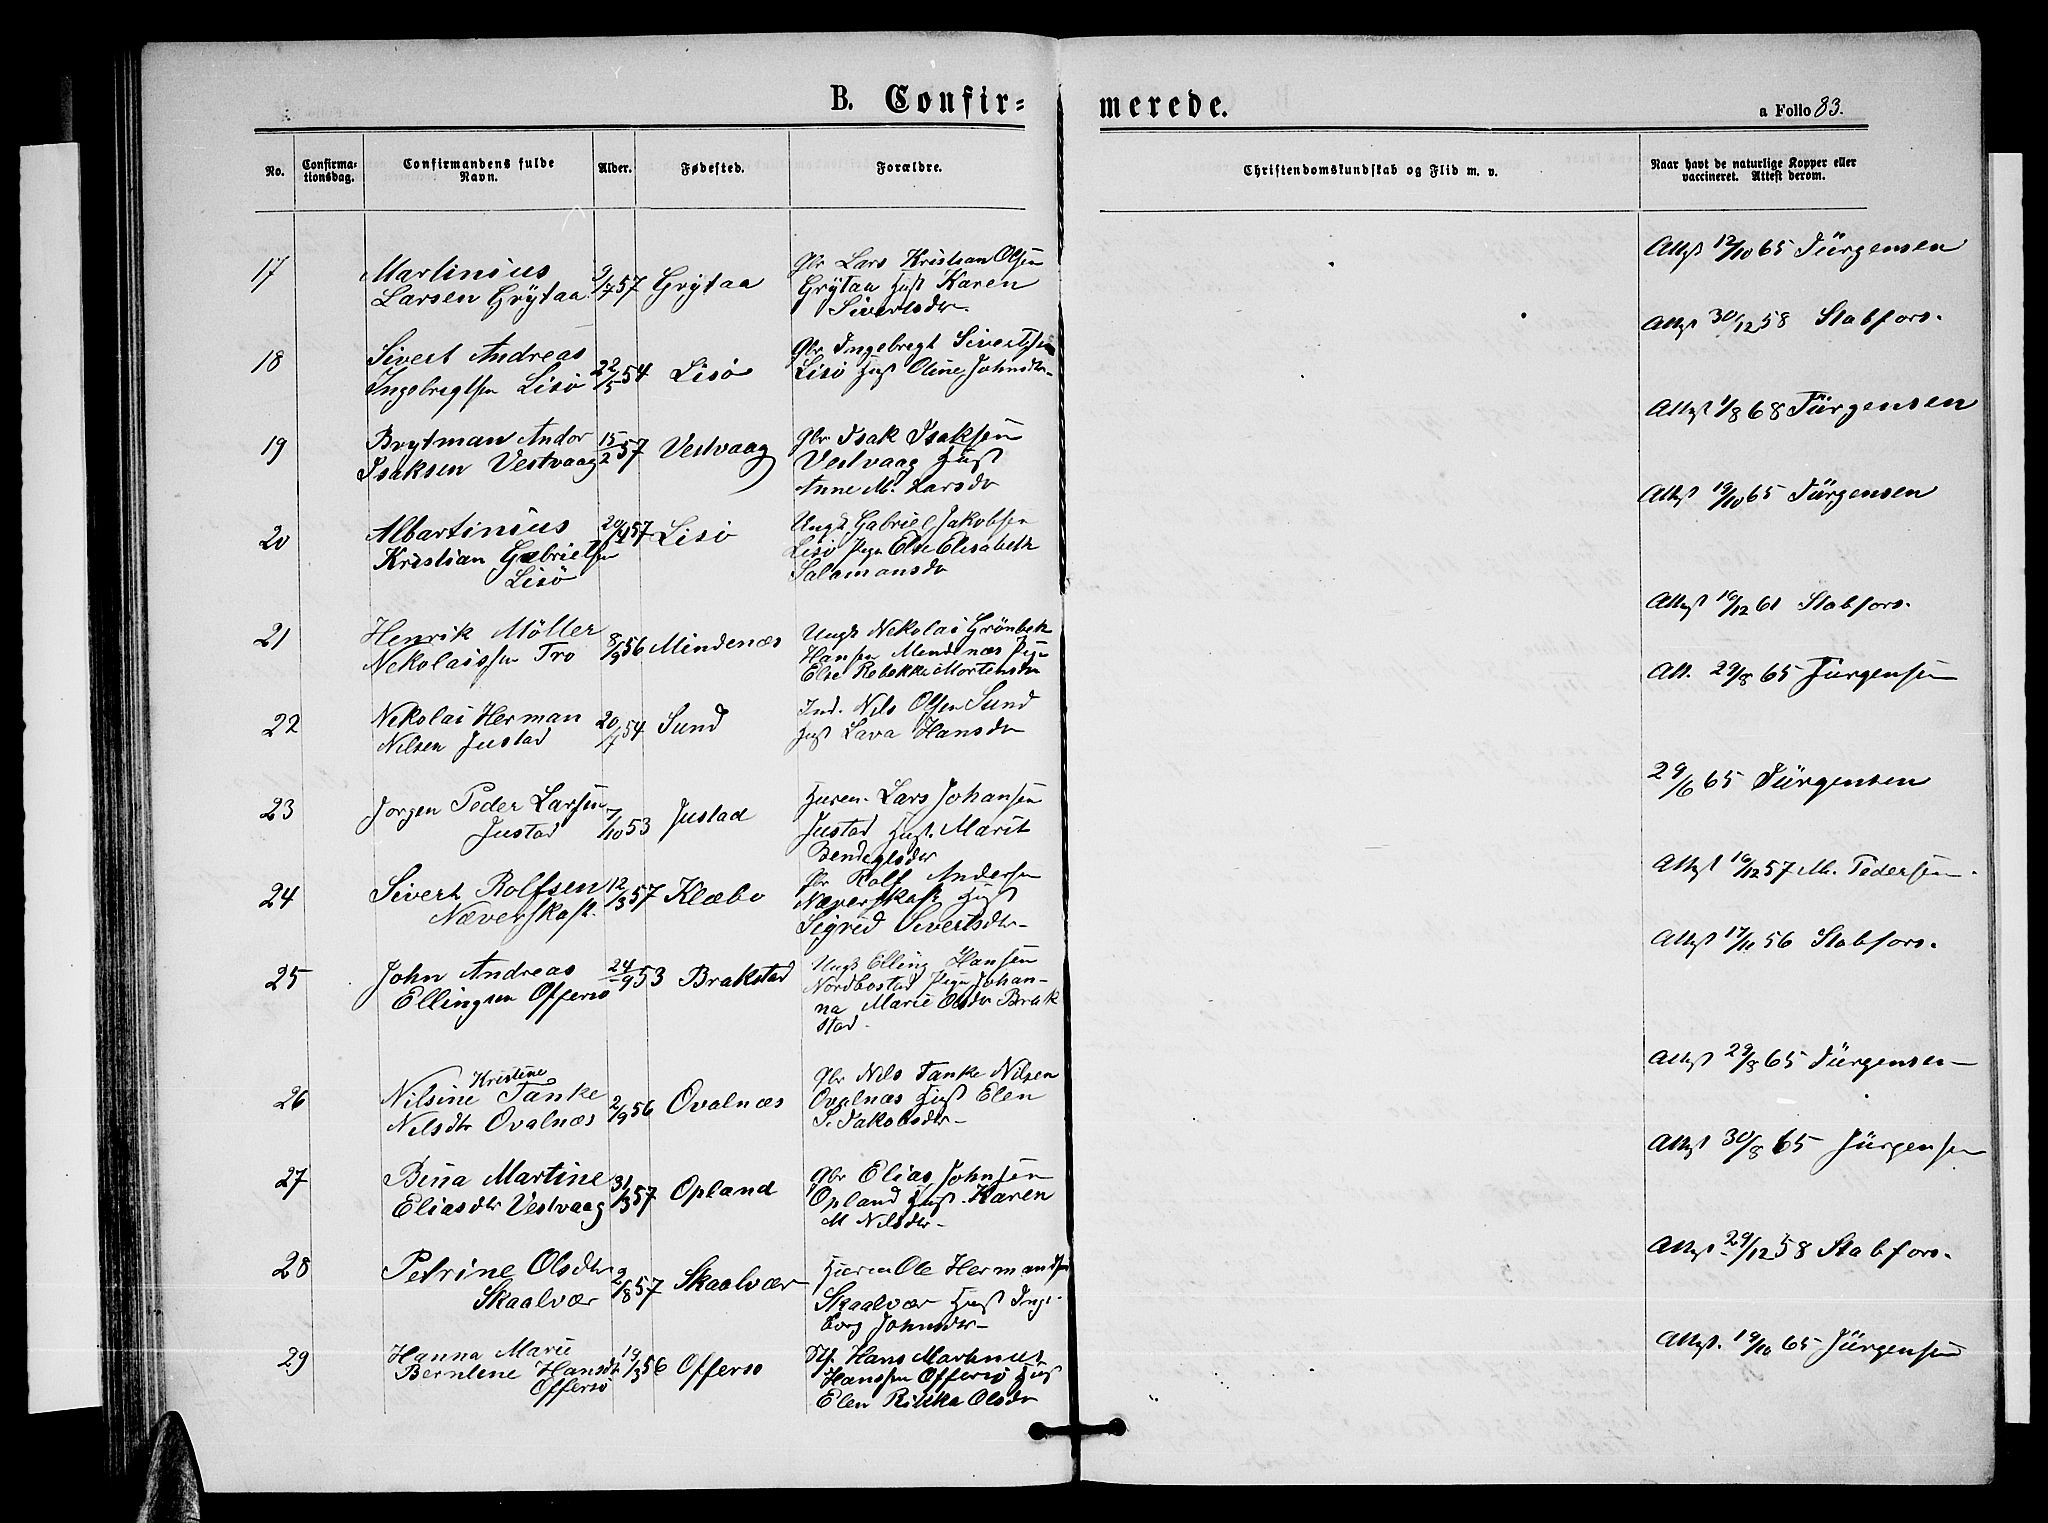 B. Confir=
merede.
a Folio 83.
No.
Confirma-
tionsdag.
Confirmandens fulde
Navn.
Alder.
Fødested.
Forældre.
Christendomskundskab og Flid m. v.
Naar havt de naturlige Kopper eller
vaccineret. Attest derom.
17 Martinius 9/7 57 Grÿtaa Gbr Lars Kristian Olsen Attest 12/10 65 Jürgensen
Larsen Grÿtaa Grÿtaa Hust Karen
Sivertsdtr.
18 Sivert Andreas 22/5 54 Lisö Gbr Ingebregt Sivertsen Attest 30/12 58 Stabfors.
Ingebregtsen Lisö Lisö Hust Oline Johnsdtr
19 Brytman Andor 15/2 57 Vestvaag Gbr Isak Isaksen Attest 1/8 68 Jürgensen
Isaksen Vestvaag Vestvaag Hust
Anne M. Larsdr
20 Albartinius 20/4 57 Lisö Ungk Gabriel Jakobsen Attest 19/10 65 Jürgensen
Kristian Gabrielsen Lisö Pige Else Elisabeth
Lisö Salamonsdr
21 Henrik Möller 8/9 56 Mindenæs Ungk Nekolai Grönbek Attest 16/12 61 Stabfors.
Nekolaissen Tro Hansen Mendenæs Pige
Else Rebekka Mortensdr
22 Nekolai Herman 20/7 54 Sund Ind. Nils Olsen Sund Att. 29/8 65 Jürgensen
Nilsen Justad Hust Lava Hansdr
23 Jorgen Peder Larsen 7/10 53 Justad Huren. Lars Johansen 29/6 65 Jürgensen
Justad Justad Hust. Marit
Bendegtsdtr
24 Sivert Rolfsen 12/3 57 Klæbo Gbr Rolf Andersen Attest 16/12 57 M. Pedersen.
Næverskaft. Næverskaft Hust
Sigrid Sivertsdtr
25 John Andreas 24/9 53 Brakstad Ungk Elling Hansen Attest 17/11 56 Stabfors.
Ellingsen Offersö Nordbostad Pige Johan-
na Marie Olsdr Brak
stad.
26 Nilsine Kristine Tanke 2/9 56 Ovalnæs Gbr Nils Tanke Nilsen Attest 29/8 65 Jürgensen
Nilsdtr Ovalnæs Ovalnæs Hust Elen
S. Jakobsdtr
27 Bina Martine 31/3 57 Opland Gbr Elias Johnsen Attest 30/8 65 Jürgensen
Eliasdtr Vestvaag Opland Hust. Karen
M Nilsdtr
28 Petrine Olsdtr 2/8 57 Skaalvær Huren Ole Hermansen Attest 29/12 58 Stabfors.
Skaalvær Skaalvær Hust Inge-
borg Johnsdtr
29 Hanna Marie 19/3 56 Offerso Hans Martinus Attest. 19/10 65 Jürgensen
Berntine Hansdtr Hanssen Offersö Hust
Offersö Elen Rikka Olsdr